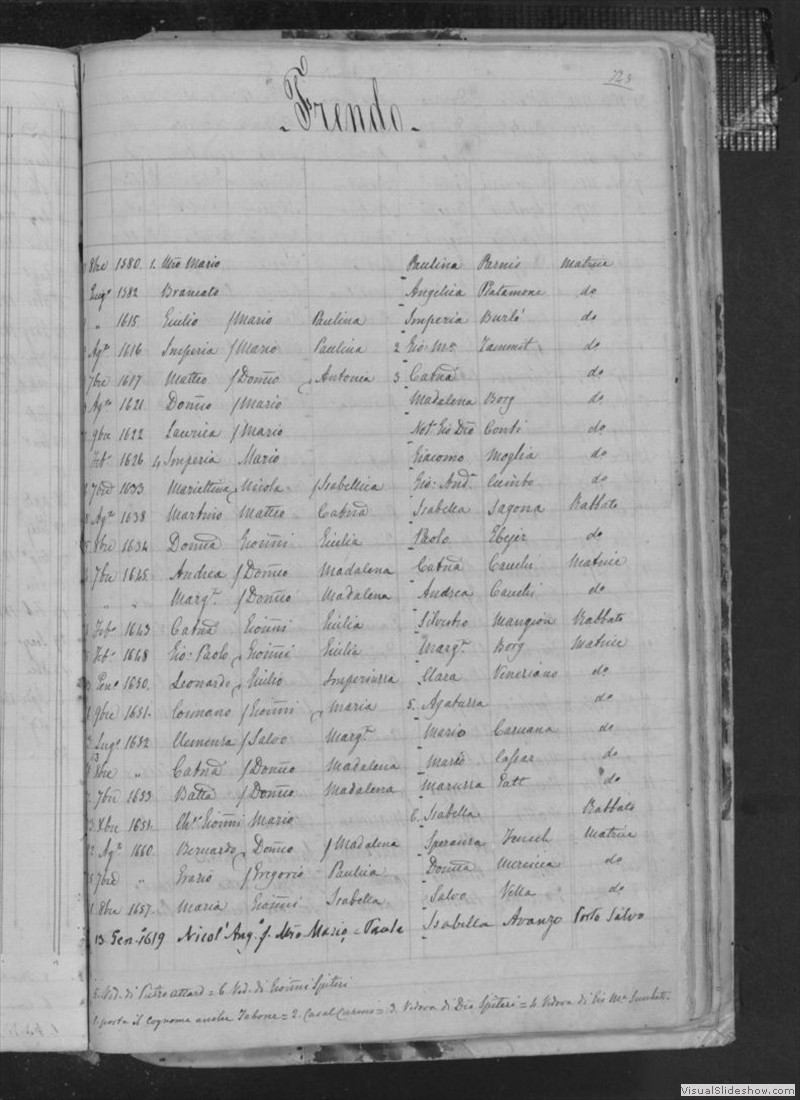 723
- Frendo -
8bre 1580. 1. Mro Mario Paulina Parnis Matrice
Lug° 1582 Brancato Angelica Platamone do
" 1615 Giulio f Mario Paulina Imperia Burlò do
Ag° 1616 Imperia f Mario Paulina 2 Gio: Ma Zammit do
7bre 1617 Matteo f Domco Antonia 3 Catna do
Ag° 1621 Domco f Mario Madalena Borg do
9bre 1622 Laurica f Mario Not. Gio Dro Conti do
Feb° 1626 4 Imperia Mario Giacomo Moglia do
7bre 1633 Mariettina Nicola f Isabellica Gio: And. Cumbo do
Ag° 1638 Martino Matteo Catna Isabella Sagona Rabbato
8bre 1634 Domca Gioanni Giulia Paolo Ebejer do
7bre 1645. Andrea f Domco Madalena Catna Cauchi Matrice
" " Marga f Domco Madalena Andrea Cauchi do
Feb° 1643 Catna Gioanni Giulia Silvestro Mangion Rabbato
Feb° 1648 Gio: Paolo Gioanni Giulia Marga Borg Matrice
Gen° 1650. Leonardo Giulio Imperiuzza Clara Veneriano do
9bre 1651. Cosmano f Gioanni Maria 5. Agatuzza do
Lug° 1652 Clemenza f Salvo Marga Mario Caruana do
8bre " Catna f Domco Madalena Mario Cassar do
7bre 1653 Batta f Domco Madalena Maruzza Patt do
Xbre 1651. Gioanni Mario 6. Isabella Rabbato
Ag° 1660. Bernardo Domco f Madalena Speranza Zerech Matrice
7bre " Grazio f Gregorio Paulica Domca Mereica do
8bre 1657. Maria Gioanni Isabella Salvo Vella do
13 Gen.° 1619 Nicol' Ang.° f. Mro Mario = Paola Isabella Avanzo Porto Salvo
5. Ved. di Pietro Attard = 6. Ved. di Gioanni Spiteri
1. porta il cognome anche Zabone = 2. Casal Curmi = 3. Vedova di Dro Spiteri = 4. Vedova di Gio Ma
VisualSlideshow.com